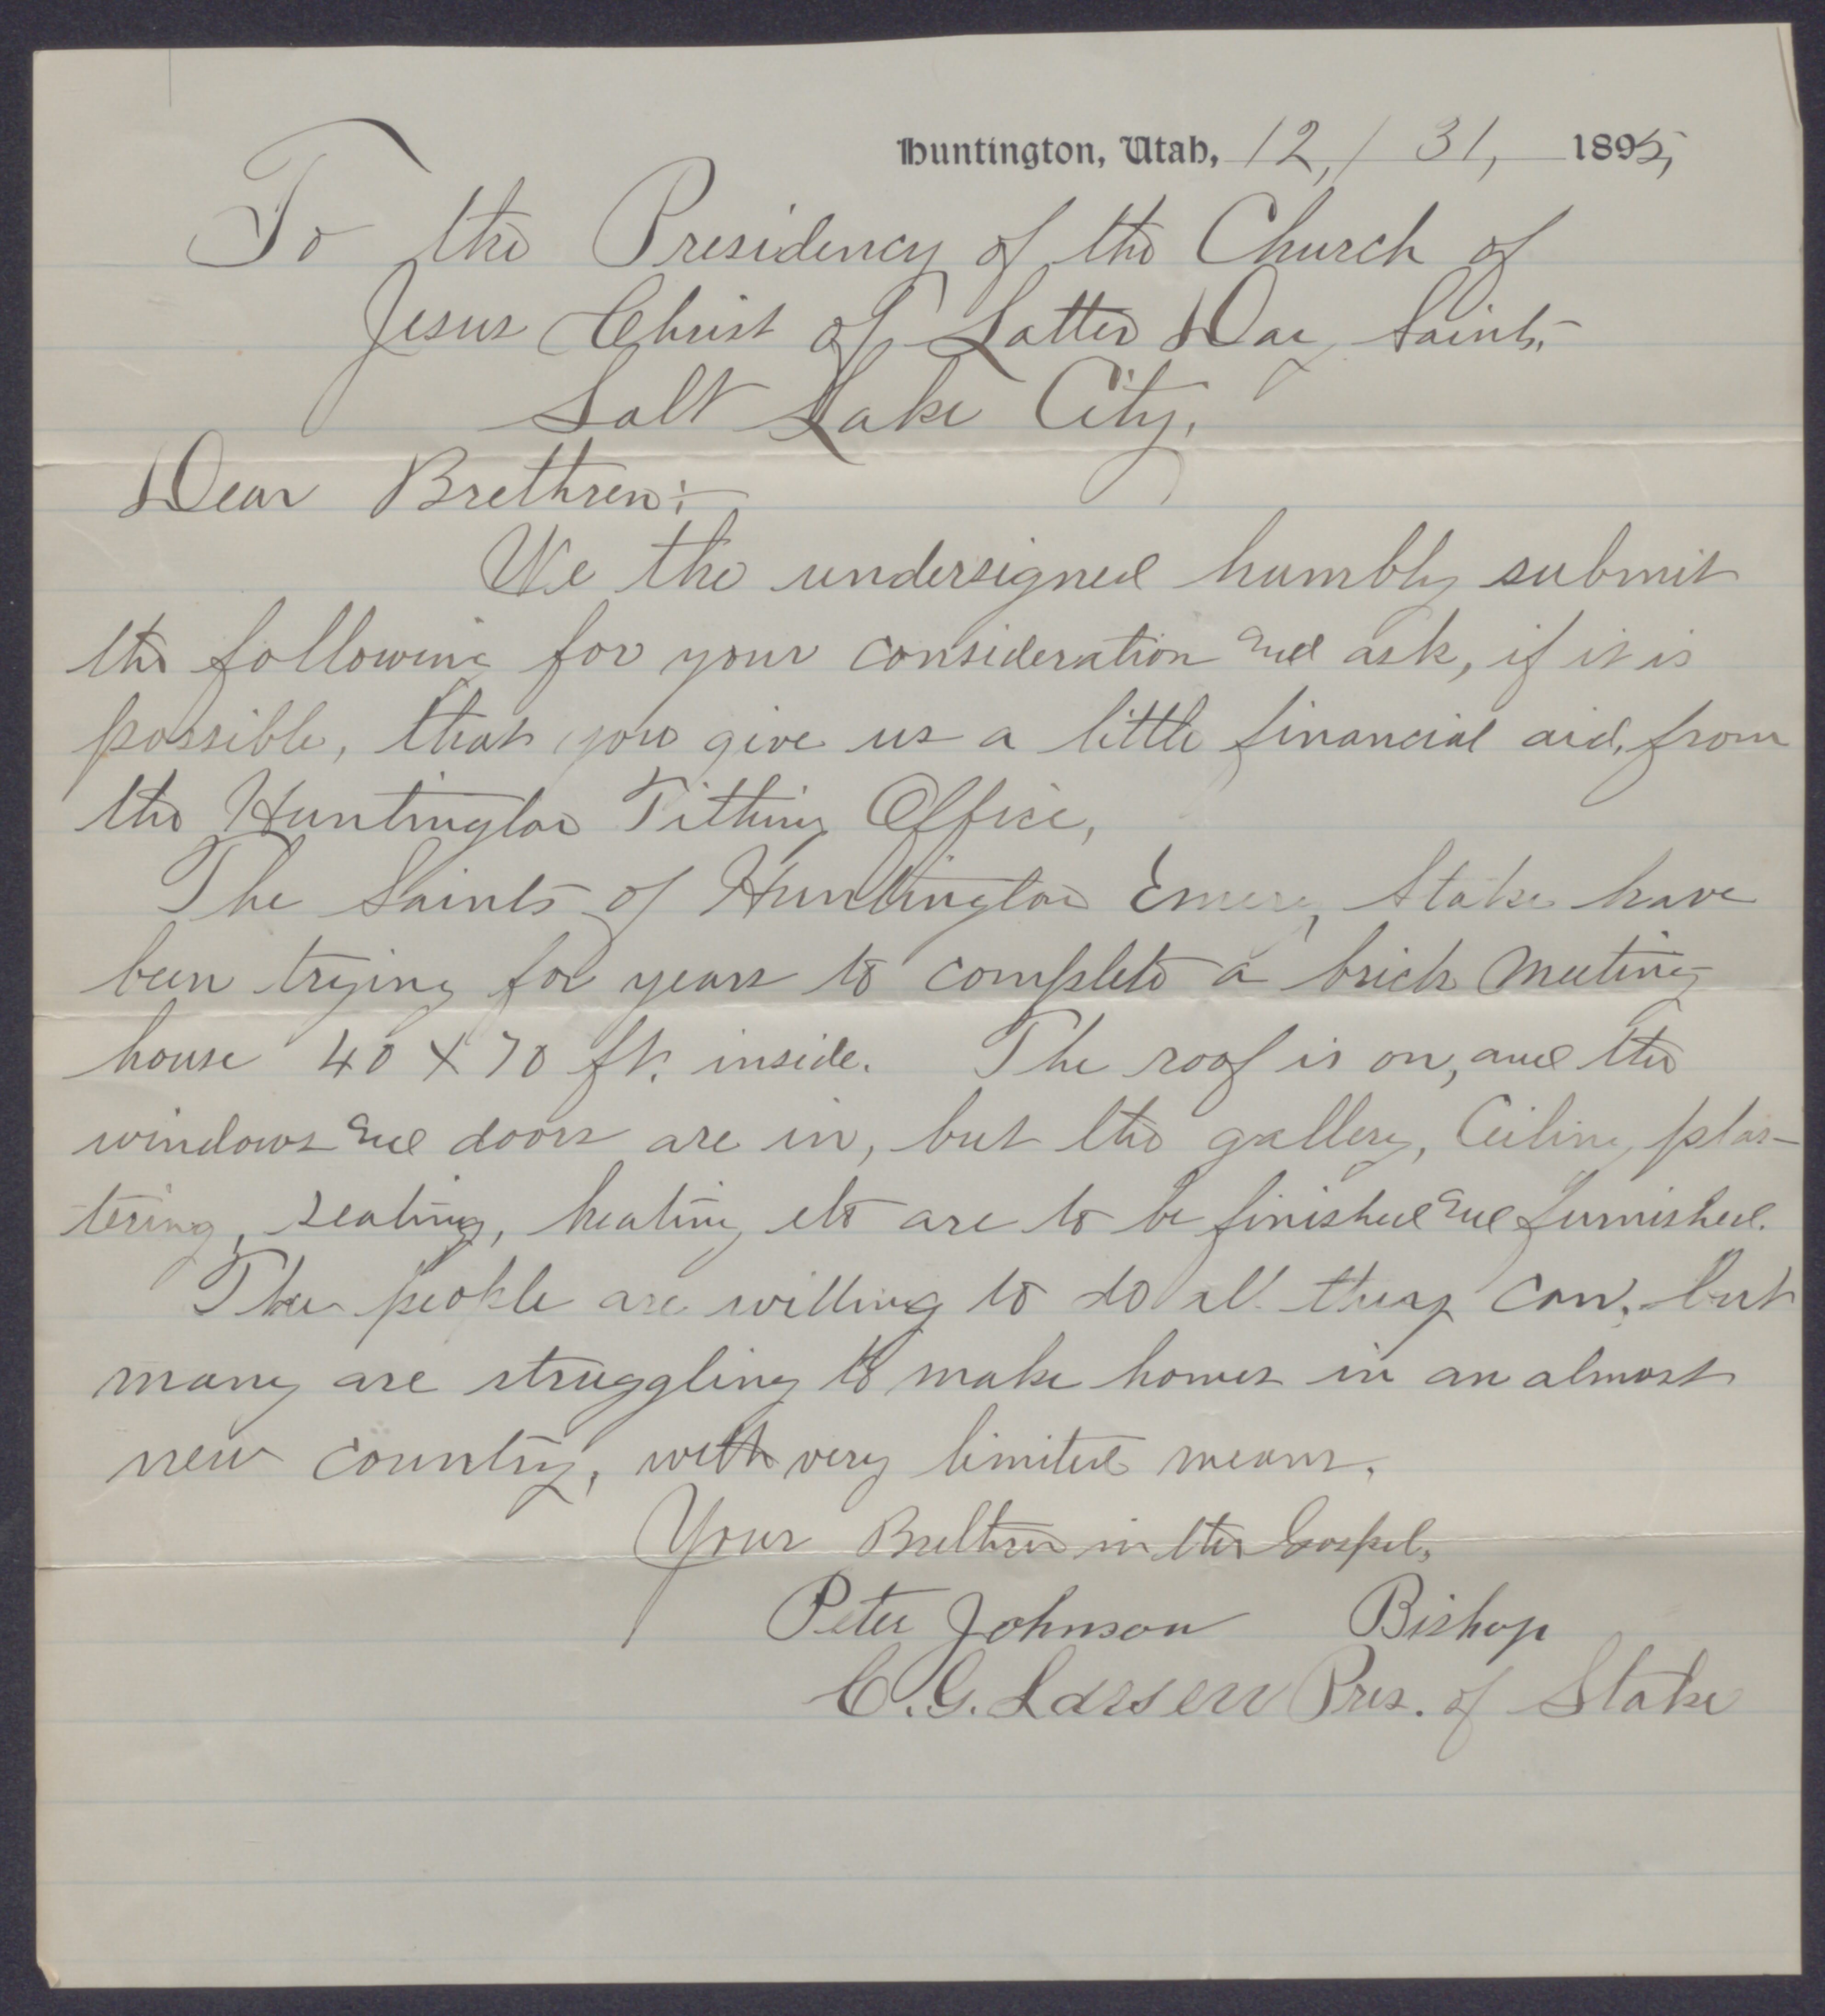 Huntington, Utah, 12, / 31, 1895,
To the Presidency of the Church of
Jesus Christ of Latter Day Saints,
Salt Lake City,
Dear Brethren:
We the undersigned humbly submit
the following for your consideration and ask, if it is
possible, that you give us a little financial aid, from
the Huntington Tithing Office,
The Saints of Huntington Emery Stake have
been trying for years to complete a brick meeting
house 40 X 70 ft. inside. The roof is on, and the
windows and doors are in, but the gallery, Ceiling, plas-
tering, seating, heating etc are to be finished and furnished.
The people are willing to do all they can, but
many are struggling to make homes in an almost
new country, with very limited means.
Your Brethren in the Gospel,
Peter Johnson Bishop
C. G. Larsen Pres. of Stake